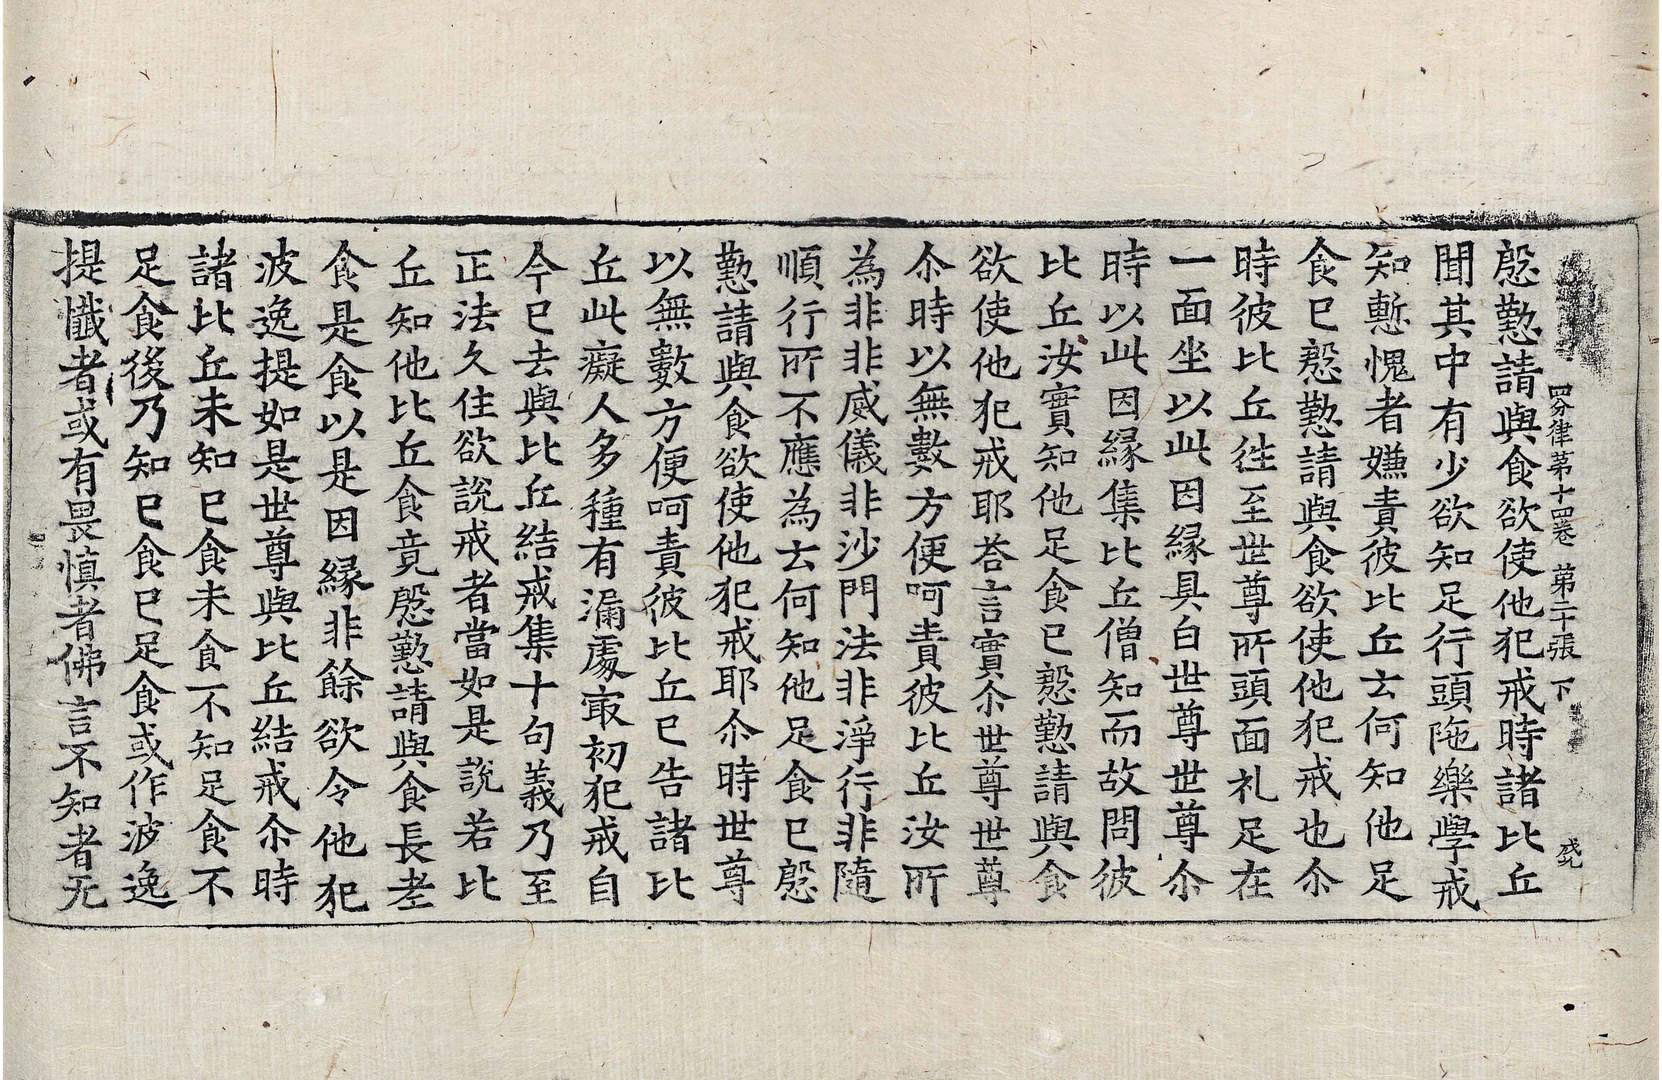 四分律第十四卷 第二十張 下 盛
慇懃請與食欲使他犯戒時諸比丘
聞其中有少欲知足行頭陁樂學戒
知慙愧者嫌責彼比丘云何知他足
食已慇懃請與食欲使他犯戒也尒
時彼比丘徃至世尊所頭面礼足在
一面坐以此因縁具白世尊世尊尒
時以此因縁集比丘僧知而故問彼
比丘汝實知他足食已慇懃請與食
欲使他犯戒耶荅言實尒世尊世尊
尒時以無數方便呵責彼比丘汝所
為非非威儀非沙門法非淨行非隨
順行所不應為云何知他足食已慇
懃請與食欲使他犯戒耶尒時世尊
以無數方便呵責彼比丘已告諸比
丘此癡人多種有漏處㝡初犯戒自
今已去與比丘結戒集十句義乃至
正法久住欲說戒者當如是說若比
丘知他比丘食竟慇懃請與食長老
食是食以是因縁非餘欲令他犯
波逸提如是世尊與比丘結戒尒時
諸比丘未知已食未食不知足食不
足食後乃知已食已足食或作波逸
提懺者或有畏慎者佛言不知者无